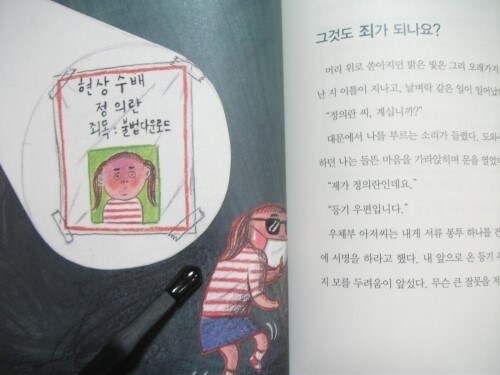 현상 수배
정의란
죄목 : 불법다운로드
그것도 죄가 되나요?
머리 위로 쏟아지던 밝은 빛은 그리 오래가지
난 지 이틀이 지나고, 날벼락 같은 일이 일어났
"정의란 씨, 계십니까?"
대문에서 나를 부르는 소리가 들렸다.
하던 나는 들뜬 마음을 가라앉히며 문을 열었다
"제가 정의란인데요."
"등기 우편입니다."
우체부 아저씨는 내게 서류 봉투 하나를 건
에 서명을 하라고 했다. 내 앞으로 온 등기 우
지 모를 두려움이 앞섰다. 무슨 큰 잘못을 저